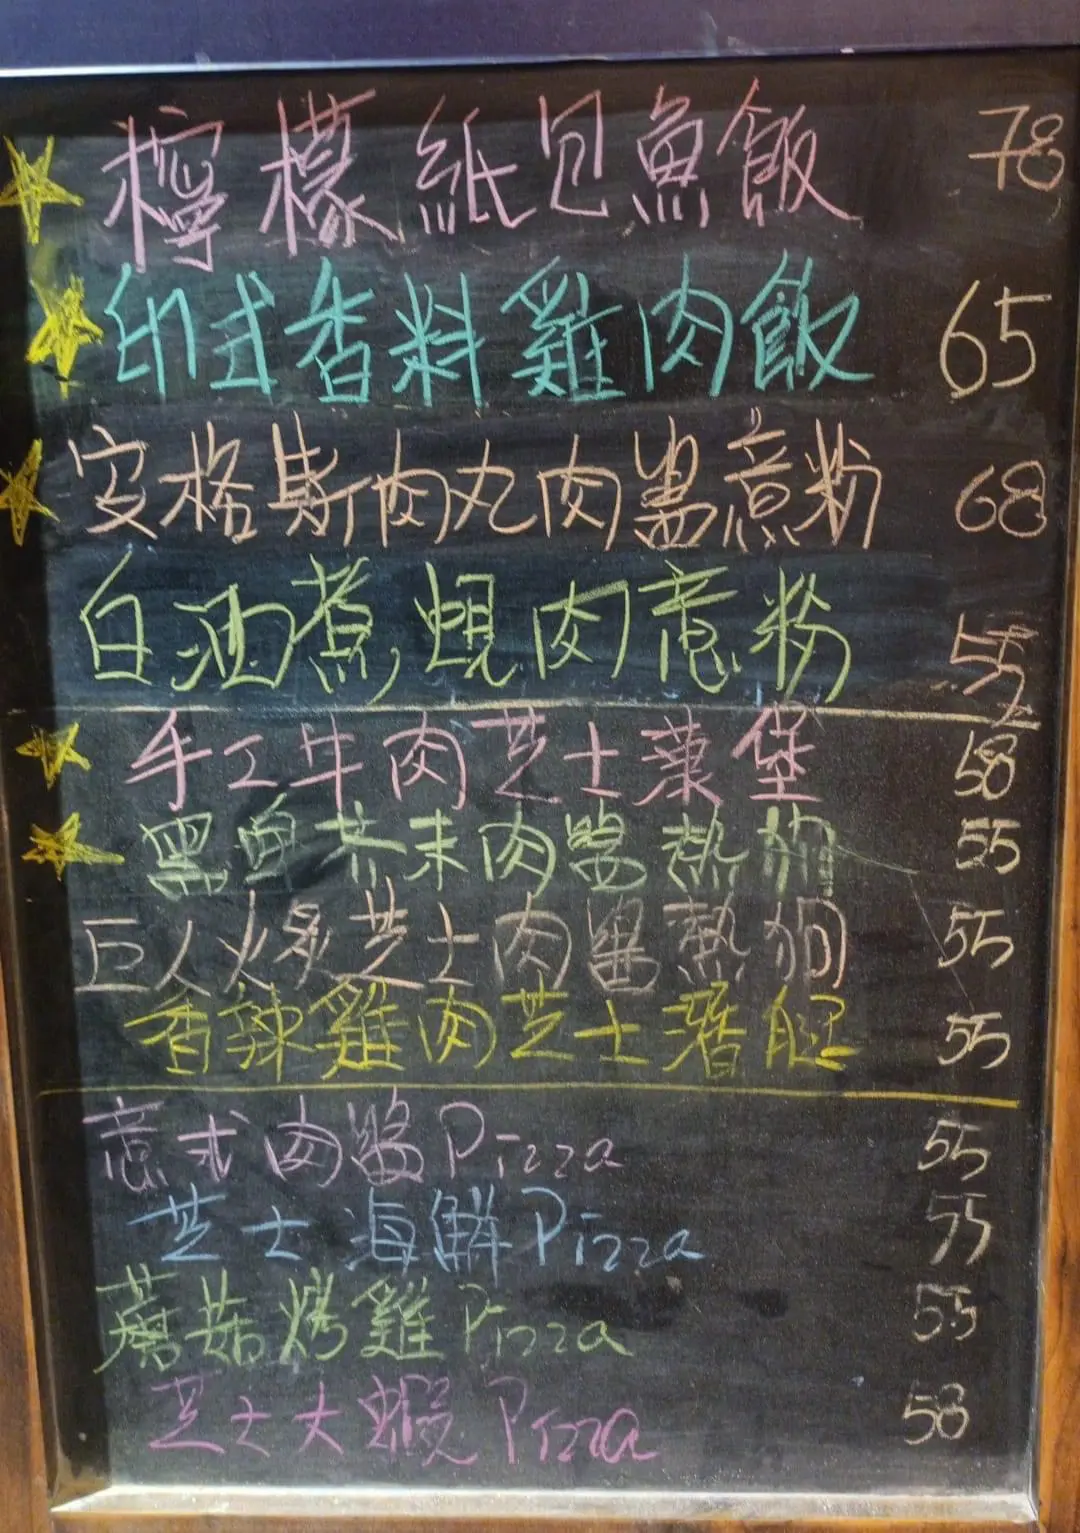 檸檬紙包魚飯 78
印式香料雞肉飯 65
安格斯肉丸肉醬意粉 68
白油煮蜆肉意粉 55
手工牛肉芝士漢堡 58
黑白芥末肉醬熱狗 55
巨人火炙芝士肉醬熱狗 55
香辣雞肉芝士薯 55
意式肉醬Pizza 55
芝士海鮮Pizza 55
蘑菇烤雞Pizza 55
芝士大蝦Pizza 58